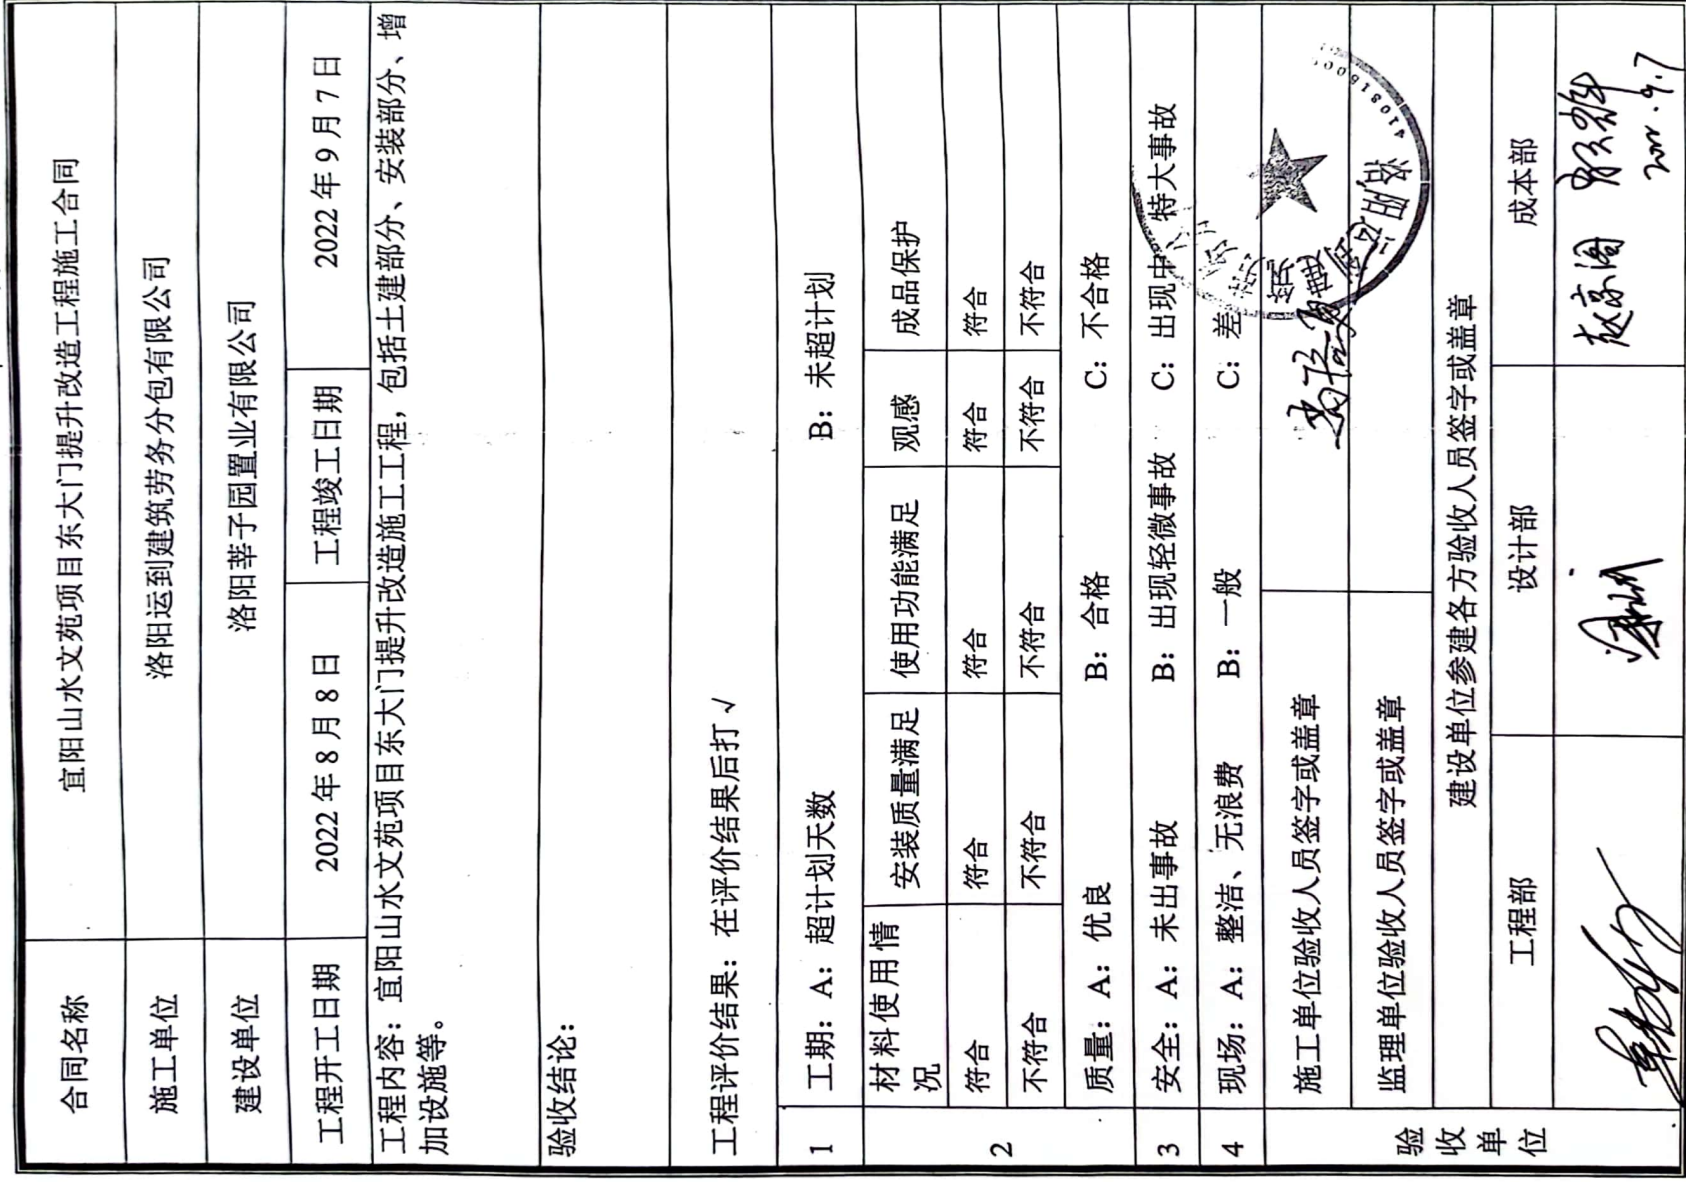 合同名称 宜阳山水文苑项目东大门提升改造工程施工合同
施工单位 洛阳运到建筑劳务分包有限公司
建设单位 洛阳莘子园置业有限公司
工程开工日期 2022年8月8日 工程竣工日期 2022年9月7日
工程内容：宜阳山水文苑项目东大门提升改造施工工程，包括土建部分、安装部分、增
加设施等。
验收结论：
工程评价结果：在评价结果后打√
1 工期：A：超计划天数 B：未超计划
2 材料使用情 安装质量满足 使用功能满足 观感 成品保护
况
符合 符合 符合 符合 符合
不符合 不符合 不符合 不符合 不符合
质量：A：优良 B：合格 C：不合格
3 安全：A：未出事故 B：出现轻微事故 C：出现中 特大事故
4 现场：A：整洁、无浪费 B：一般 C：差
验收单位 施工单位验收人员签字或盖章
监理单位验收人员签字或盖章
建设单位参建各方验收人员签字或盖章
工程部 设计部 成本部
2022.9.7